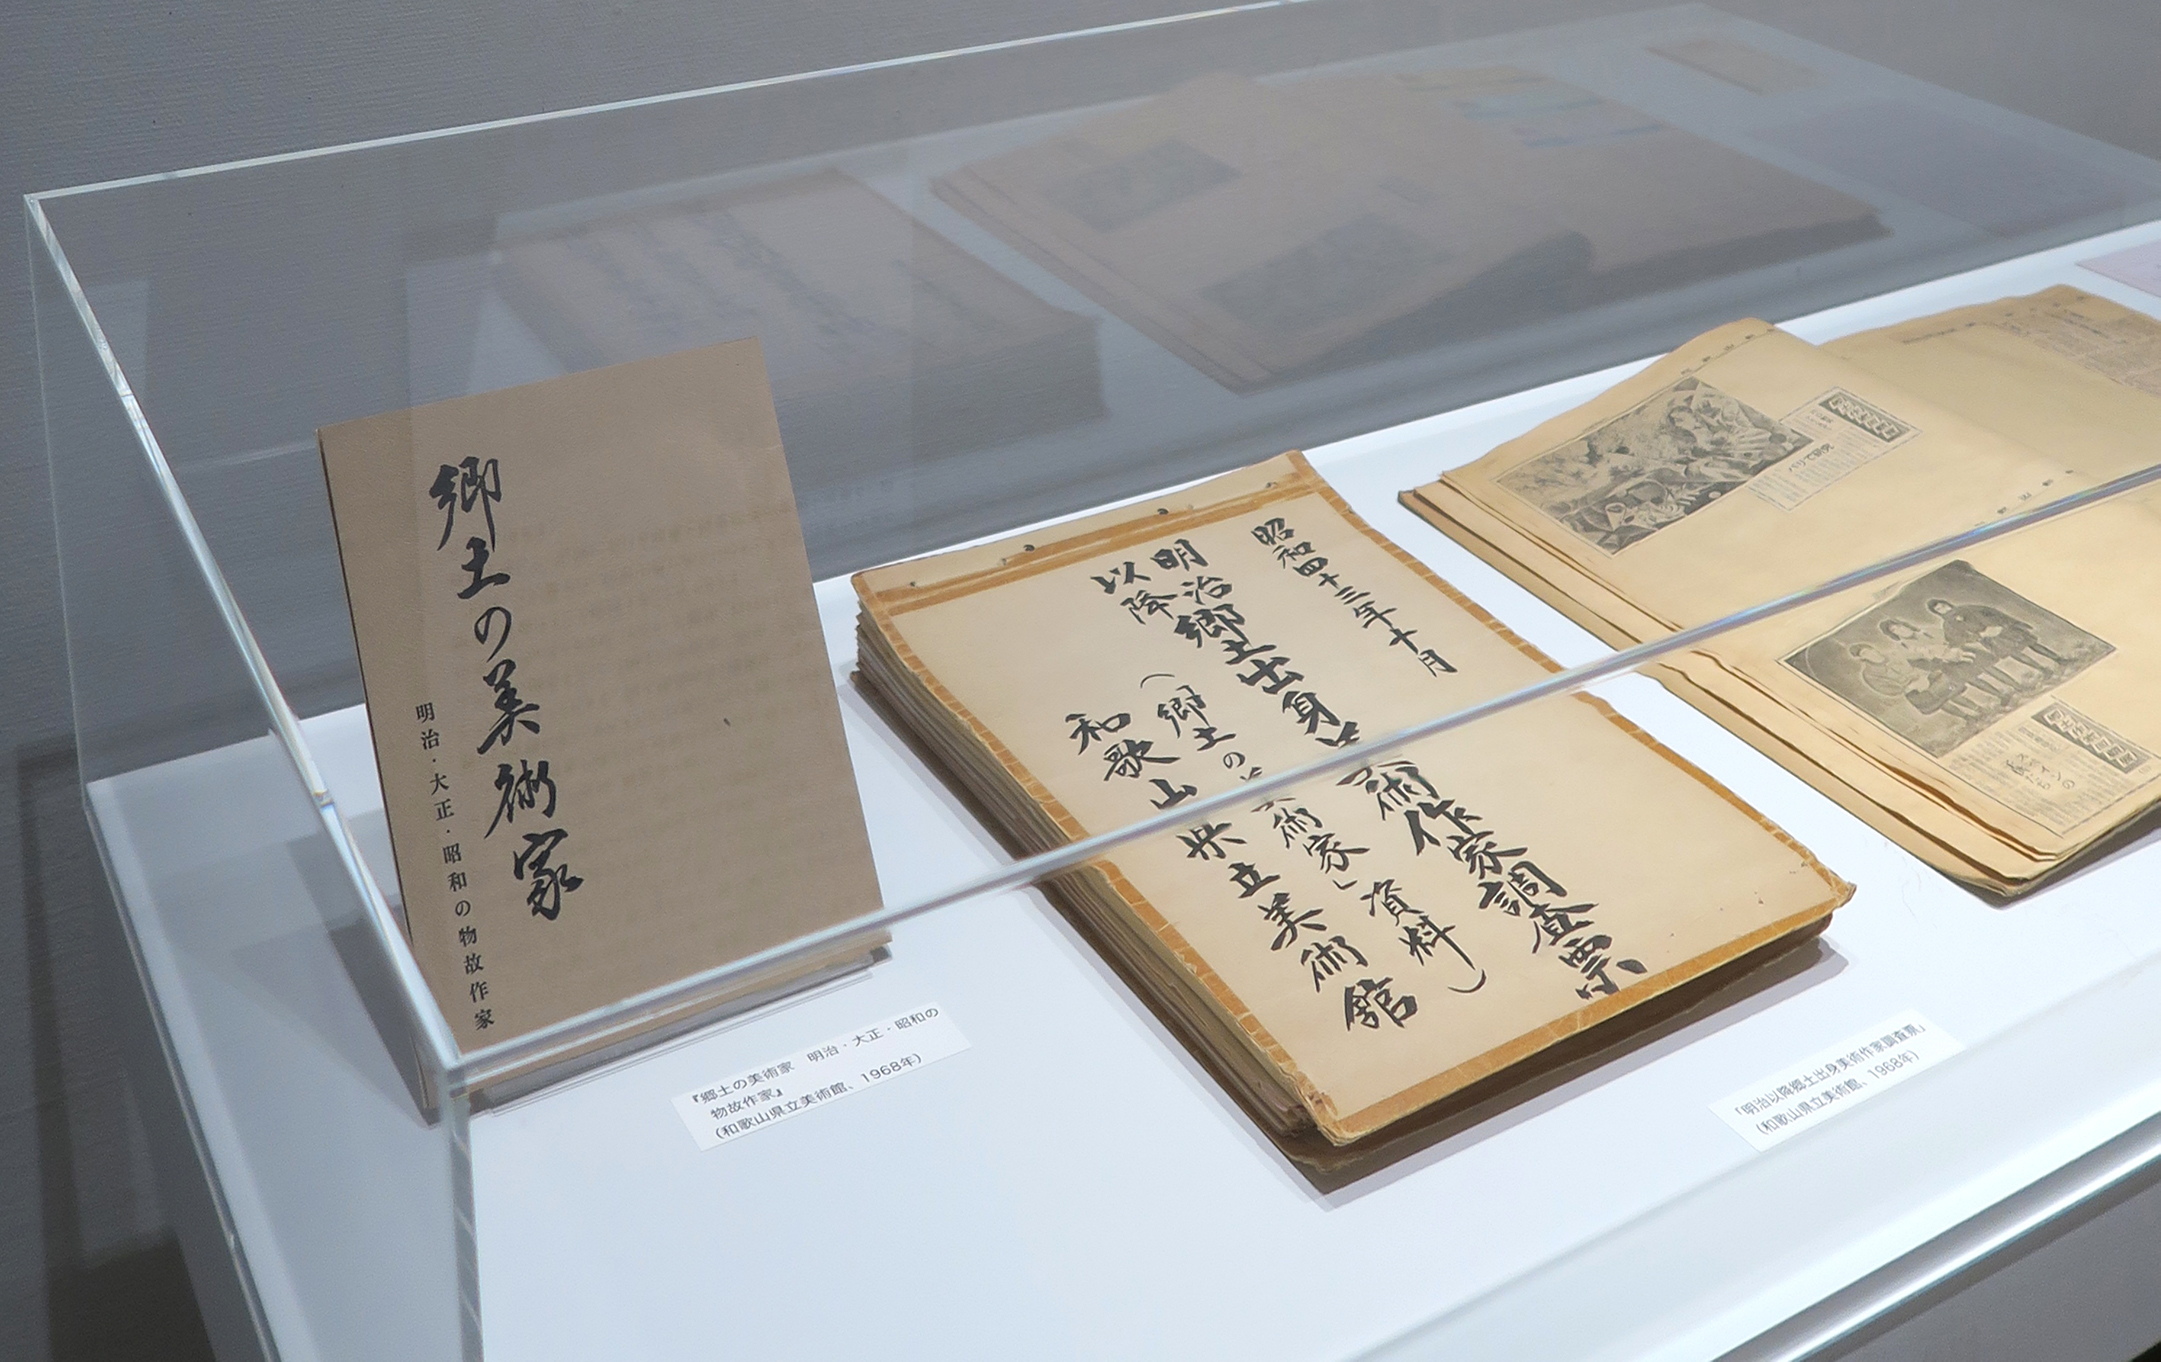 郷土の美術家
明治・大正・昭和の物故作家
『郷土の美術家　明治・大正・昭和の
物故作家』
(和歌山県立美術館、1968年)
昭和四十三年十月
明治
以降
郷土出身美術作家調査票
(郷土の美術家」資料)
和歌山県立美術館
「明治以降郷土出身美術作家調査票」
(和歌山県立美術館、1968年)
パリで研究
スペインの
友だち